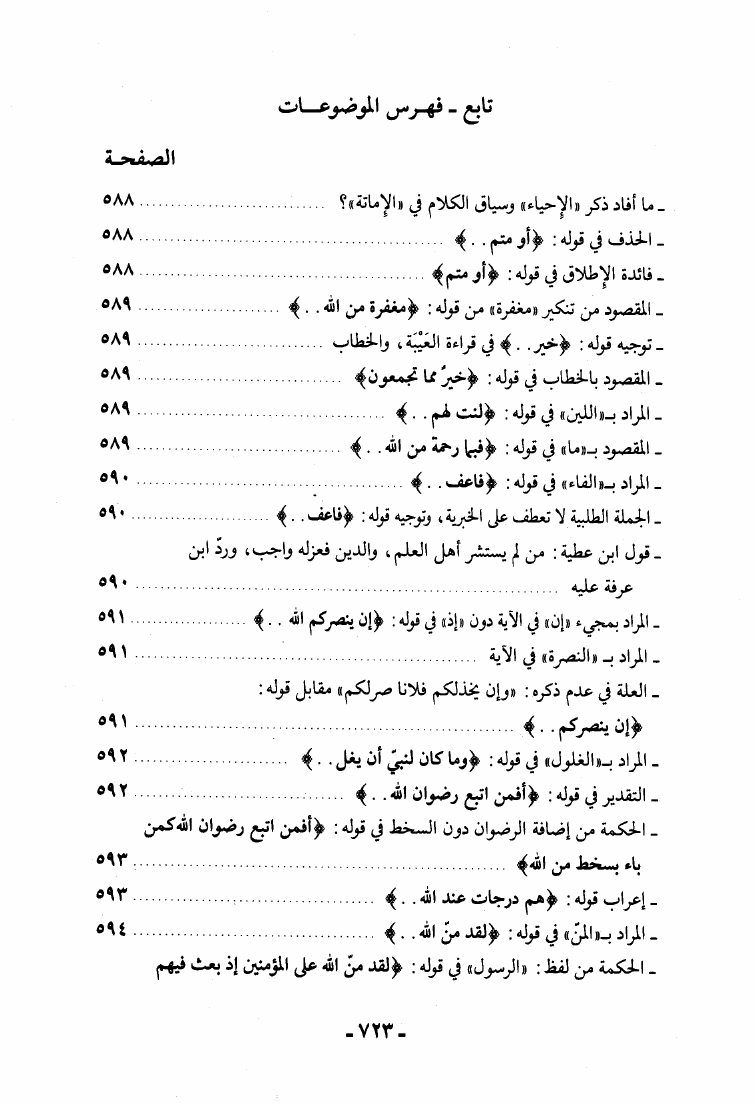 تابع ـ فهـرس الموضوعـــات
الصفحـة
ـ ما أفاد ذكر «الإحياء» وسياق الكلام في «الإماتة»؟ ........ ٥٨٨
ـ الحذف في قوله: ﴿أو متم . . ﴾ ........ ٥٨٨
ـ فائدة الإطلاق في قوله: ﴿أو متم﴾ ........ ٥٨٨
ـ المقصود من تنكير «مغفرة» من قوله: ﴿مغفرة من الله . . ﴾ ........ ٥٨٩
ـ توجيه قوله: ﴿خير . . ﴾ في قراءة الغَيْبَة، والخطاب ........ ٥٨٩
ـ المقصود بالخطاب في قوله: ﴿خيرٌ مما تجمعون﴾ ........ ٥٨٩
ـ المراد بـ«اللين» في قوله: ﴿لنت لهم . . ﴾ ........ ٥٨٩
ـ المقصود بـ«ما» في قوله: ﴿فبما رحمة من الله . . ﴾ ........ ٥٨٩
ـ المراد بـ«الفاء» في قوله: ﴿فاعف . . ﴾ ........ ٥٩٠
ـ الجملة الطلبية لا تعطف على الخبرية، وتوجيه قوله: ﴿فاعف . . ﴾ ........ ٥٩٠
ـ قول ابن عطية: من لم يستشر أهل العلم، والدين فعزله واجب، وردّ ابن
عرفة عليه ........ ٥٩٠
ـ المراد بمجيء «إن» في الآية دون «إذ» في قوله: ﴿إن ينصركم الله . . ﴾ ........ ٥٩١
ـ المراد بـ «النصرة» في الآية ........ ٥٩١
ـ العلة في عدم ذكره: «وإن يخذلكم فلانا صرلكم» مقابل قوله:
﴿إن ينصركم . . ﴾ ........ ٥٩١
ـ المراد بـ«الغلول» في قوله: ﴿وما كان لنبيّ أن يغل . . ﴾ ........ ٥٩٢
ـ التقدير في قوله: ﴿أفمن اتبع رضوان الله . . ﴾ ........ ٥٩٢
ـ الحكمة من إضافة الرضوان دون السخط في قوله: ﴿أفمن اتبع رضوان الله كمن
باء بسخط من الله﴾ ........ ٥٩٣
ـ إعراب قوله: ﴿هم درجات عند الله . . ﴾ ........ ٥٩٣
ـ المراد بـ«المنّ» في قوله: ﴿لقد منّ الله . . ﴾ ........ ٥٩٤
ـ الحكمة من لفظ: «الرسول» في قوله: ﴿لقد منّ الله على المؤمنين إذ بعث فيهم
ـ ٧٢٣ ـ